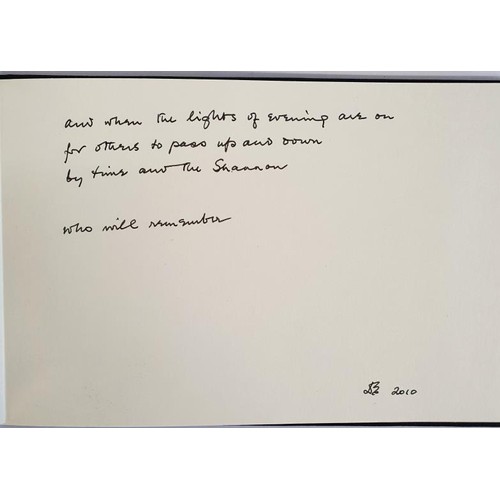 and when the lights of evening are on
for others to pass up and down
by time and the Shannon
who will remember
2010